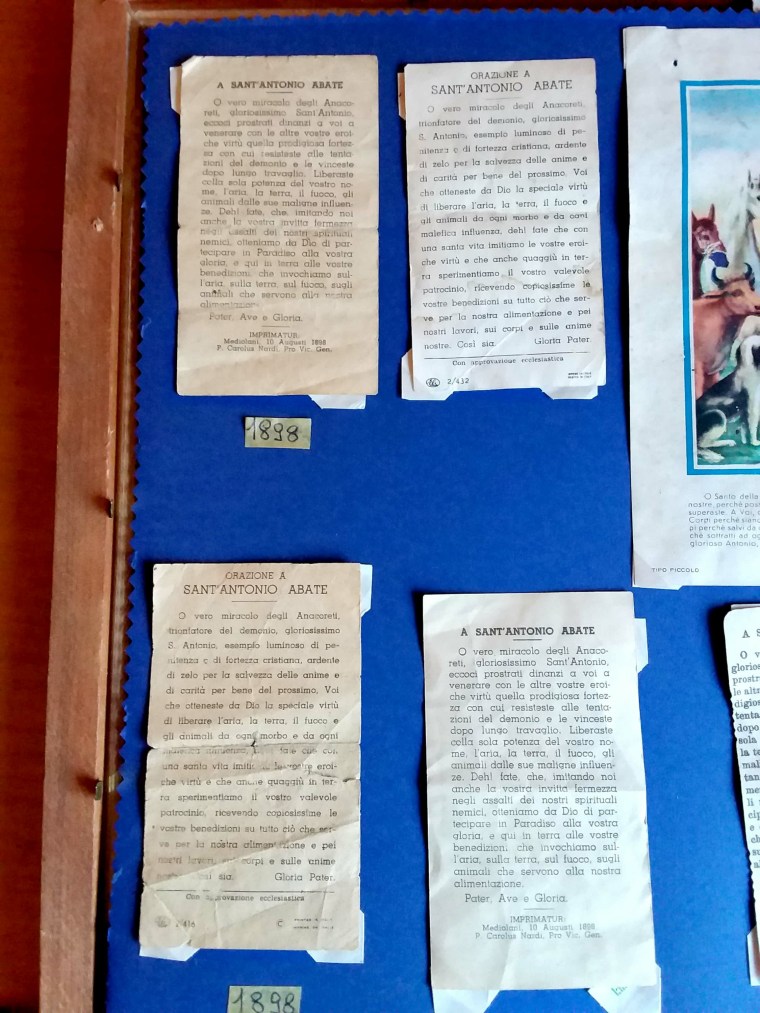 A SANT'ANTONIO ABATE
O vero miracolo degli Anaco-
reti, gloriosissimo Sant'Antonio,
eccoci prostrati dinanzi a voi a
venerare con le altre vostre eroi-
che virtù quella prodigiosa fortez-
za con cui resisteste alle tenta-
zioni del demonio e le vinceste
dopo lungo travaglio. Liberaste
colla sola potenza del vostro no-
me, l'aria, la terra, il fuoco, gli
animali dalle sue maligne influen-
ze. Deh! fate, che, imitando noi
anche la vostra invitta fermezza
negli assalti dei nostri spirituali
nemici, otteniamo da Dio di par-
tecipare in Paradiso alla vostra
gloria, e qui in terra alle vostre
benedizioni che invochiamo sul-
l'aria, sulla terra, sul fuoco, sugli
animali che servono alla nostra
alimentazione.
Pater, Ave e Gloria.
IMPRIMATUR:
Mediolani, 10 Augusti 1898
P. Carolus Nardi, Pro Vic. Gen.
1898
ORAZIONE A
SANT'ANTONIO ABATE
O vero miracolo degli Anacoreti,
trionfatore del demonio, gloriosissimo
S. Antonio, esempio luminoso di pe-
nitenza e di fortezza cristiana, ardente
di zelo per la salvezza delle anime e
di carità per bene del prossimo. Voi
che otteneste da Dio la speciale virtù
di liberare l'aria, la terra, il fuoco e
gli animali da ogni morbo e da ogni
malefica influenza, deh! fate che con
una santa vita imitiamo le vostre eroi-
che virtù e che anche quaggiù in ter-
ra sperimentiamo il vostro valevole
patrocinio, ricevendo copiosissime le
vostre benedizioni su tutto ciò che ser-
ve per la nostra alimentazione e pei
nostri lavori, sui corpi e sulle anime
nostre. Così sia. Gloria Pater.
Con approvazione ecclesiastica
2/432
O Santo della
nostre, perché
superaste. A Voi,
Corpi perché siano
pi perché salvi da
ché sottratti ad
glorioso Antonio,
TIPO PICCOLO
ORAZIONE A
SANT'ANTONIO ABATE
O vero miracolo degli Anacoreti,
trionfatore del demonio, gloriosissimo
S. Antonio, esempio luminoso di pe-
nitenza e di fortezza cristiana, ardente
di zelo per la salvezza delle anime e
di carità per bene del prossimo. Voi
che otteneste da Dio la speciale virtù
di liberare l'aria, la terra, il fuoco e
gli animali da ogni morbo e da ogni
fate che con
una santa vita vostre eroi-
che virtù e che anche quaggiù in ter-
ra sperimentiamo il vostro valevole
patrocinio, ricevendo copiosissime le
vostre benedizioni su tutto ciò che ser-
ve per la nostra alimentazione e pei
nostri lavori, sui corpi e sulle anime
sia. Gloria Pater.
Con approvazione ecclesiastica
C
1898
A SANT'ANTONIO ABATE
O vero miracolo degli Anaco-
reti, gloriosissimo Sant'Antonio,
eccoci prostrati dinanzi a voi a
venerare con le altre vostre eroi-
che virtù quella prodigiosa fortez-
za con cui resisteste alle tenta-
zioni del demonio e le vinceste
dopo lungo travaglio. Liberaste
colla sola potenza del vostro no-
me, l'aria, la terra, il fuoco, gli
animali dalle sue maligne influen-
ze. Deh! fate, che, imitando noi
anche la vostra invitta fermezza
negli assalti dei nostri spirituali
nemici, otteniamo da Dio di par-
tecipare in Paradiso alla vostra
gloria, e qui in terra alle vostre
benedizioni che invochiamo sul-
l'aria, sulla terra, sul fuoco, sugli
animali che servono alla nostra
alimentazione.
Pater, Ave e Gloria.
IMPRIMATUR:
Mediolani, 10 Augusti 1898
P. Carolus Nardi, Pro Vic. Gen.
A S
O v
glorios
prostr
le altr
digios
tenta
dopo
sola
la te
mal
tan
me
li
cip
e
ch
su